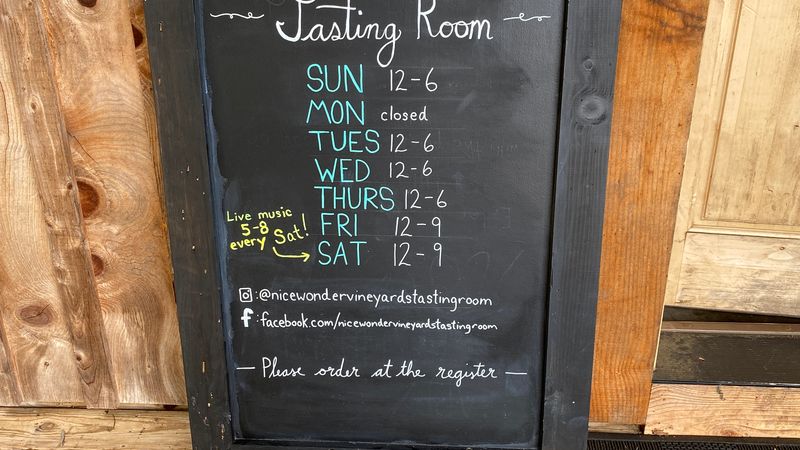 Tasting Room
SUN 12-6
MON closed
TUES 12-6
WED 12-6
THURS 12-6
FRI 12-9
SAT 12-9
Live music
5-8
every Sat!
:@nicewondervineyardstastingroom
f:facebook.com/nicewondervineyardstastingroom
— Please order at the register —